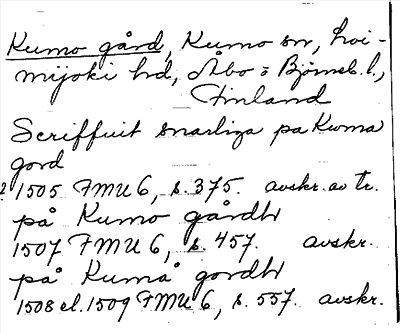 Kumo gård, Kumo sn, Loi-
mijoki hd, Åbo o Björneb. l.,
Finland
Scriffuit snarliga pa Kwma
gord
1505 FMU 6, s. 375. avskr. av tr.
på Kumo gårdh
1507 FMU 6, s. 457. avskr.
på Kumå gordh
1508 el. 1509 FMU 6, s. 557. avskr.